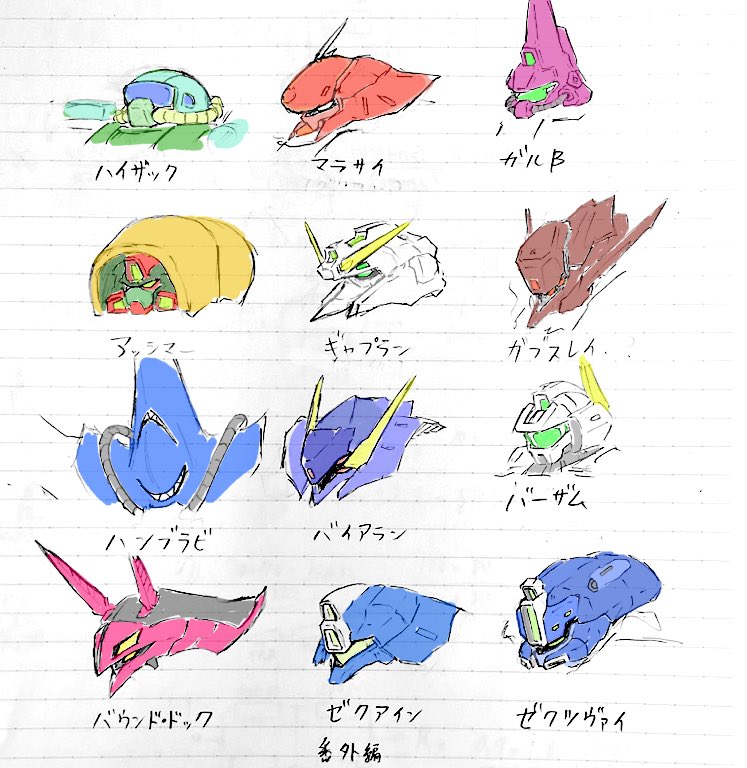 ハイザック
マラサイ
ガルβ
アッシマー
ギャプラン
ガブスレイ・・?
ハンブラビ
バイアラン
バーザム
バウンド・ドック
ゼクアイン
ゼクツヴァイ
番外編